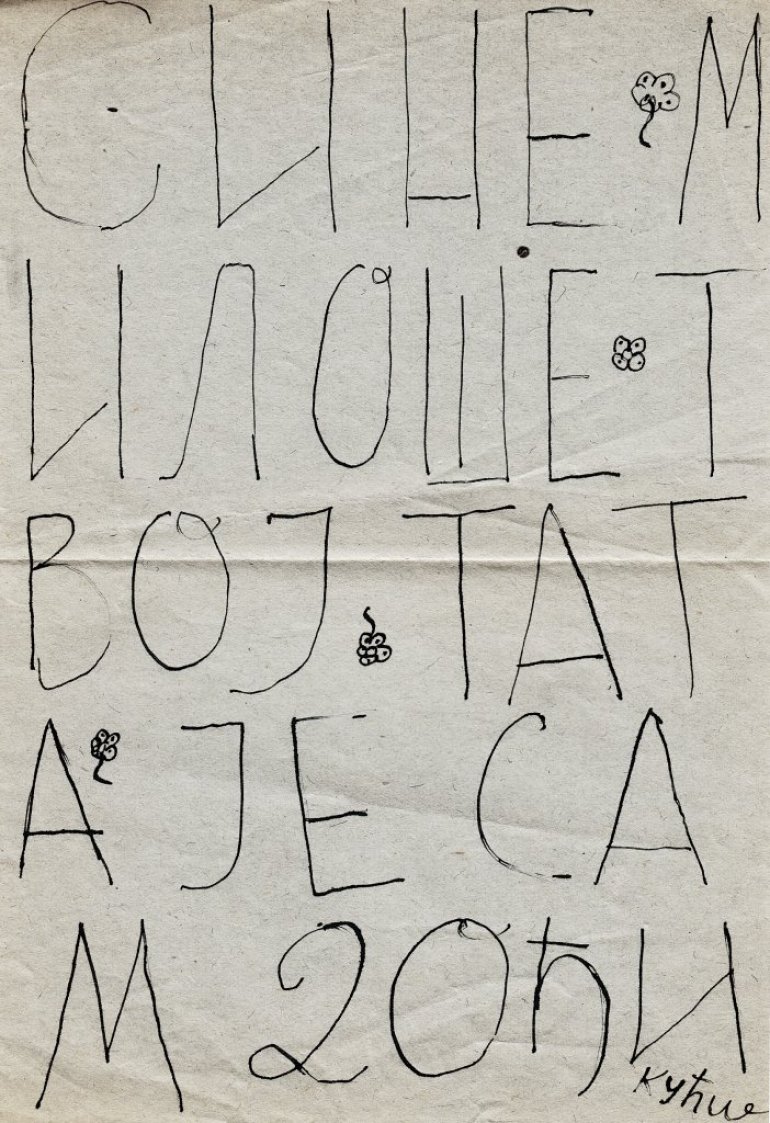 СИНЕ М
ИЛОШЕ Т
ВОЈ ТАТ
А ЈЕ СА
М ДОЂИ
кући